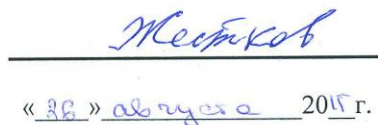 Жестков
«26» августа 2015 г.